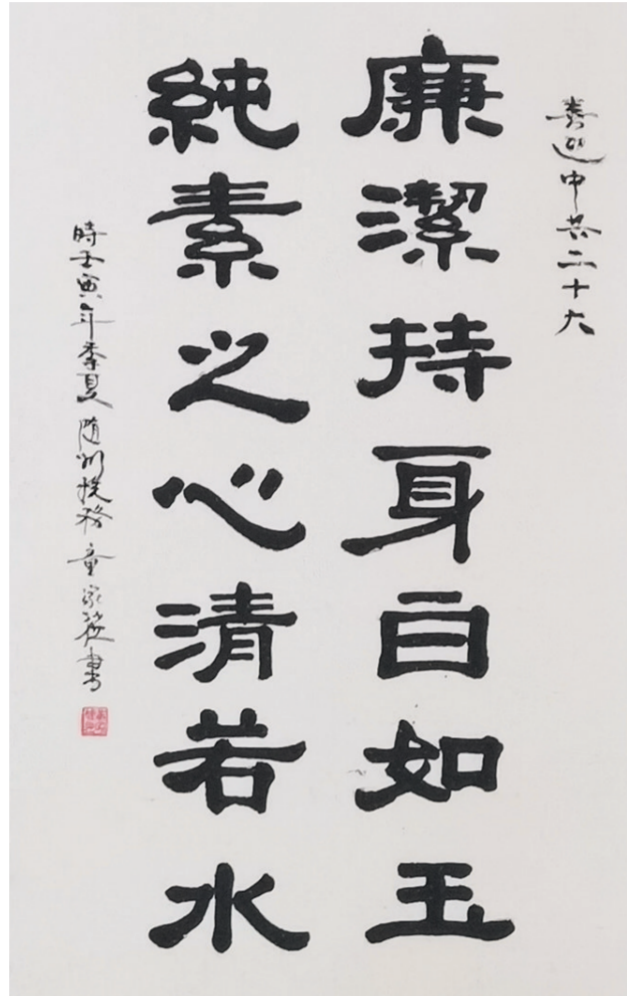 喜迎中共二十大
廉潔持身白如玉
純素之心清若水
時壬寅年季夏随州税務童家𦰡書